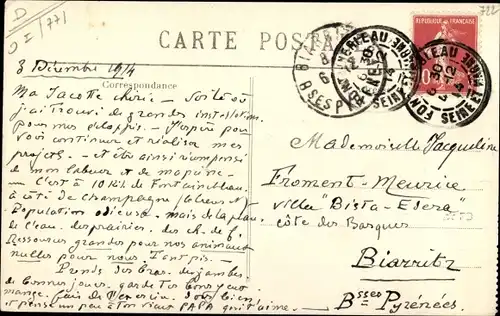 D
O = 1771
722
CARTE POSTALE
Correspondance
3 Décembre 1914
Ma Jacotte chérie - Voilà où
j'ai trouvé de grandes installations
pour mes dépôts. J'espère pour
vous continuer et réaliser mes
projets - et être ainsi récompensé
de mon labeur et de ma peine
- C'est à 10 Kil. de Fontainebleau
à côté de Champagne
Population odieuse - mais de la place
de l'eau, des prairies, des ch. de f.
Ressources grandes pour nos animaux
nulles pour nous. Tant pis -
Prends des bras, des jambes
de bonnes joues, garde tes bons yeux
mange, fais de l'exercice, dors bien
et pense un peu à ton vieux PAPA qui t'aime
Mademoiselle Jacqueline
Froment-Meurice
villa "Bista-Edera"
côte des Basques
Biarritz
Bsses Pyrénées
REPUBLIQUE FRANÇAISE
10
FONTAINEBLEAU
SEINE ET MARNE
BIARRITZ
BSES PYR